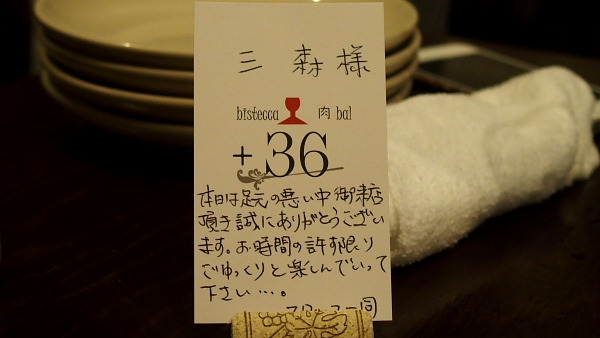 三森様
bistecca 肉 bal
+36
本日は足元の悪い中御来店
頂き誠にありがとうござい
ます。お時間の許す限り
ごゆっくりと楽しんでいって
下さい…。
一同